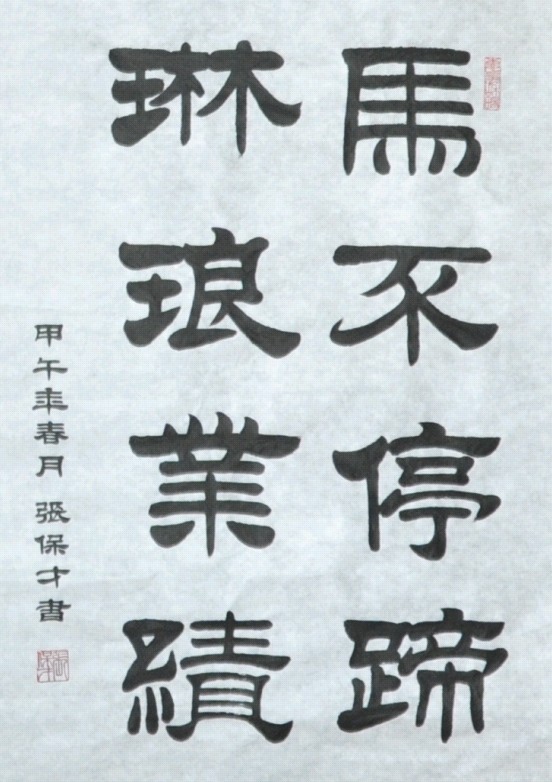 馬不停蹄
琳琅業績
甲午年春月 張保才書